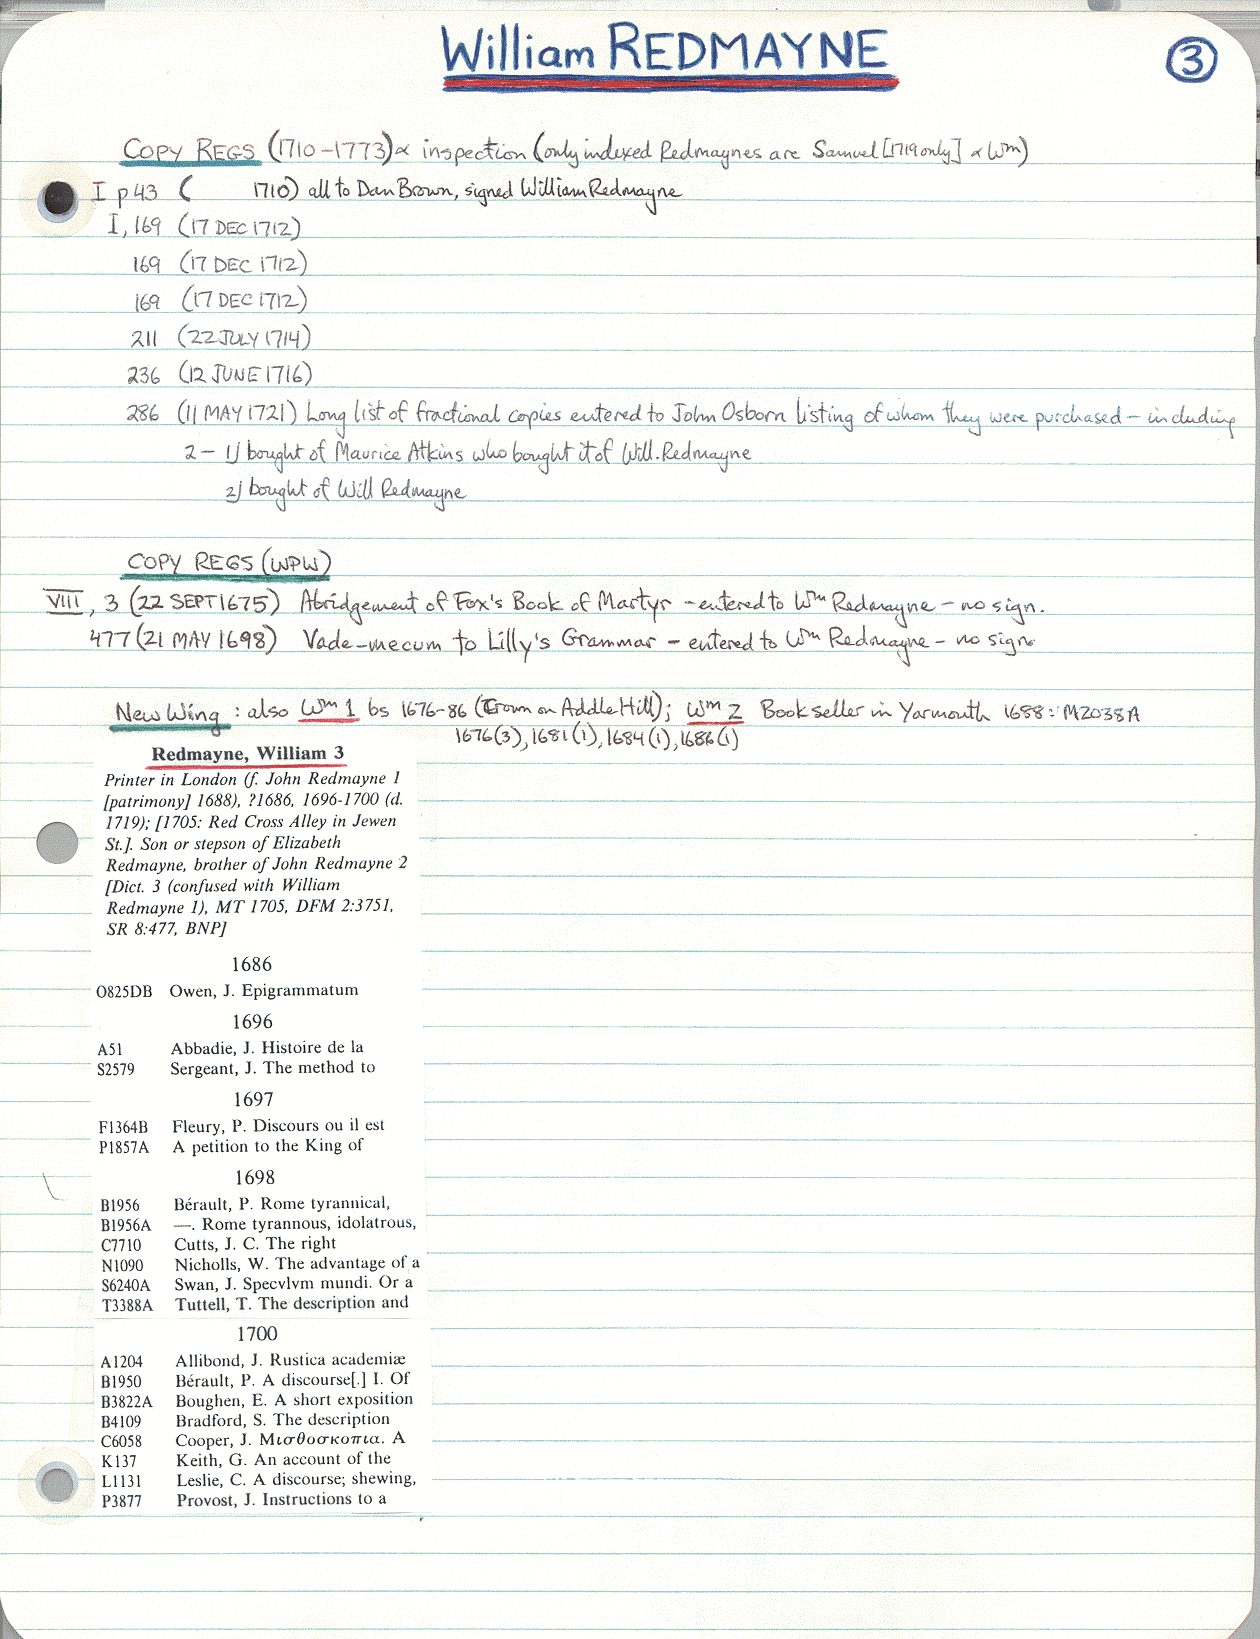 William REDMAYNE
3
COPY REGS (1710-1773) ∝ inspection (only indexed Redmaynes are Samuel [1719 only] ∝ Wm)
I p43 ( 1710) all to Dan Brown, signed William Redmayne
I, 169 (17 DEC 1712)
169 (17 DEC 1712)
169 (17 DEC 1712)
211 (22 JULY 1714)
236 (12 JUNE 1716)
286 (11 MAY 1721) Long list of fractional copies entered to John Osborn listing of whom they were purchased – including
2 – 1/ bought of Maurice Atkins who bought it of Will. Redmayne
2/ bought of Will Redmayne
COPY REGS (WPW)
VIII, 3 (22 SEPT 1675) Abridgement of Fox's Book of Martyr – entered to Wm Redmayne – no sign.
477 (21 MAY 1698) Vade-mecum to Lilly's Grammar – entered to Wm Redmayne – no sign
New Wing : also Wm 1 bs 1676-86 (Crown on Addle Hill); Wm 2 Bookseller in Yarmouth 1688: M2038A
1676(3), 1681(1), 1684(1), 1686(1)
Redmayne, William 3
Printer in London (f. John Redmayne 1
[patrimony] 1688), ?1686, 1696-1700 (d.
1719); [1705: Red Cross Alley in Jewen
St.]. Son or stepson of Elizabeth
Redmayne, brother of John Redmayne 2
[Dict. 3 (confused with William
Redmayne 1), MT 1705, DFM 2:3751,
SR 8:477, BNP]
1686
O825DB Owen, J. Epigrammatum
1696
A51 Abbadie, J. Histoire de la
S2579 Sergeant, J. The method to
1697
F1364B Fleury, P. Discours ou il est
P1857A A petition to the King of
1698
B1956 Bérault, P. Rome tyrannical,
B1956A —. Rome tyrannous, idolatrous,
C7710 Cutts, J. C. The right
N1090 Nicholls, W. The advantage of a
S6240A Swan, J. Specvlvm mundi. Or a
T3388A Tuttell, T. The description and
1700
A1204 Allibond, J. Rustica academiæ
B1950 Bérault, P. A discourse[.] I. Of
B3822A Boughen, E. A short exposition
B4109 Bradford, S. The description
C6058 Cooper, J. Μισθοσκοπια. A
K137 Keith, G. An account of the
L1131 Leslie, C. A discourse; shewing,
P3877 Provost, J. Instructions to a